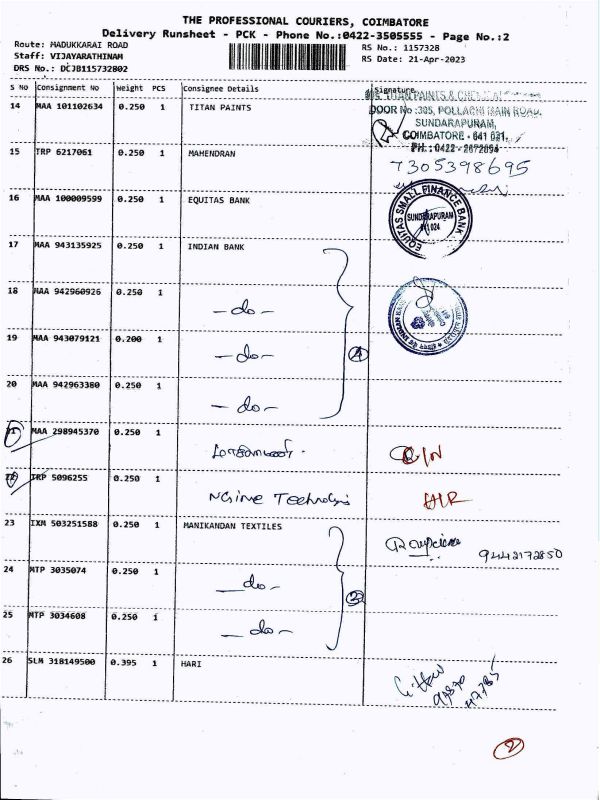 THE PROFESSIONAL COURIERS, COIMBATORE
Delivery Runsheet - PCK - Phone No.:0422-3505555 - Page No.:2
Route: MADUKKARAI ROAD
RS No.: 1157328
Staff: VIJAYARATHINAM
RS Date: 21-Apr-2023
DRS No.: DCJB115732802
S No Consignment No Weight PCS Consignee Details Signature
14 MAA 101102634 0.250 1 TITAN PAINTS
305, TITAN PAINTS &
DOOR No :305, POLLACHI MAIN ROAD,
SUNDARAPURAM,
COIMBATORE - 641 021.
PH : 0422 -
15 TRP 6217061 0.250 1 MAHENDRAN 7305398695
16 MAA 100009599 0.250 1 EQUITAS BANK
EQUITAS SMALL FINANCE BANK
SUNDARAPURAM
641 024
17 MAA 943135925 0.250 1 INDIAN BANK
18 MAA 942960926 0.250 1 -do-
INDIAN BANK
19 MAA 943079121 0.200 1 -do- 4
20 MAA 942963380 0.250 1 -do-
21 MAA 298945370 0.250 1 R/N
22 TRP 5096255 0.250 1
23 IXM 503251588 0.250 1 MANIKANDAN TEXTILES 9442172850
24 MTP 3035074 0.250 1 -do- 3
25 MTP 3034608 0.250 1 -do-
26 SLM 318149500 0.395 1 HARI
2